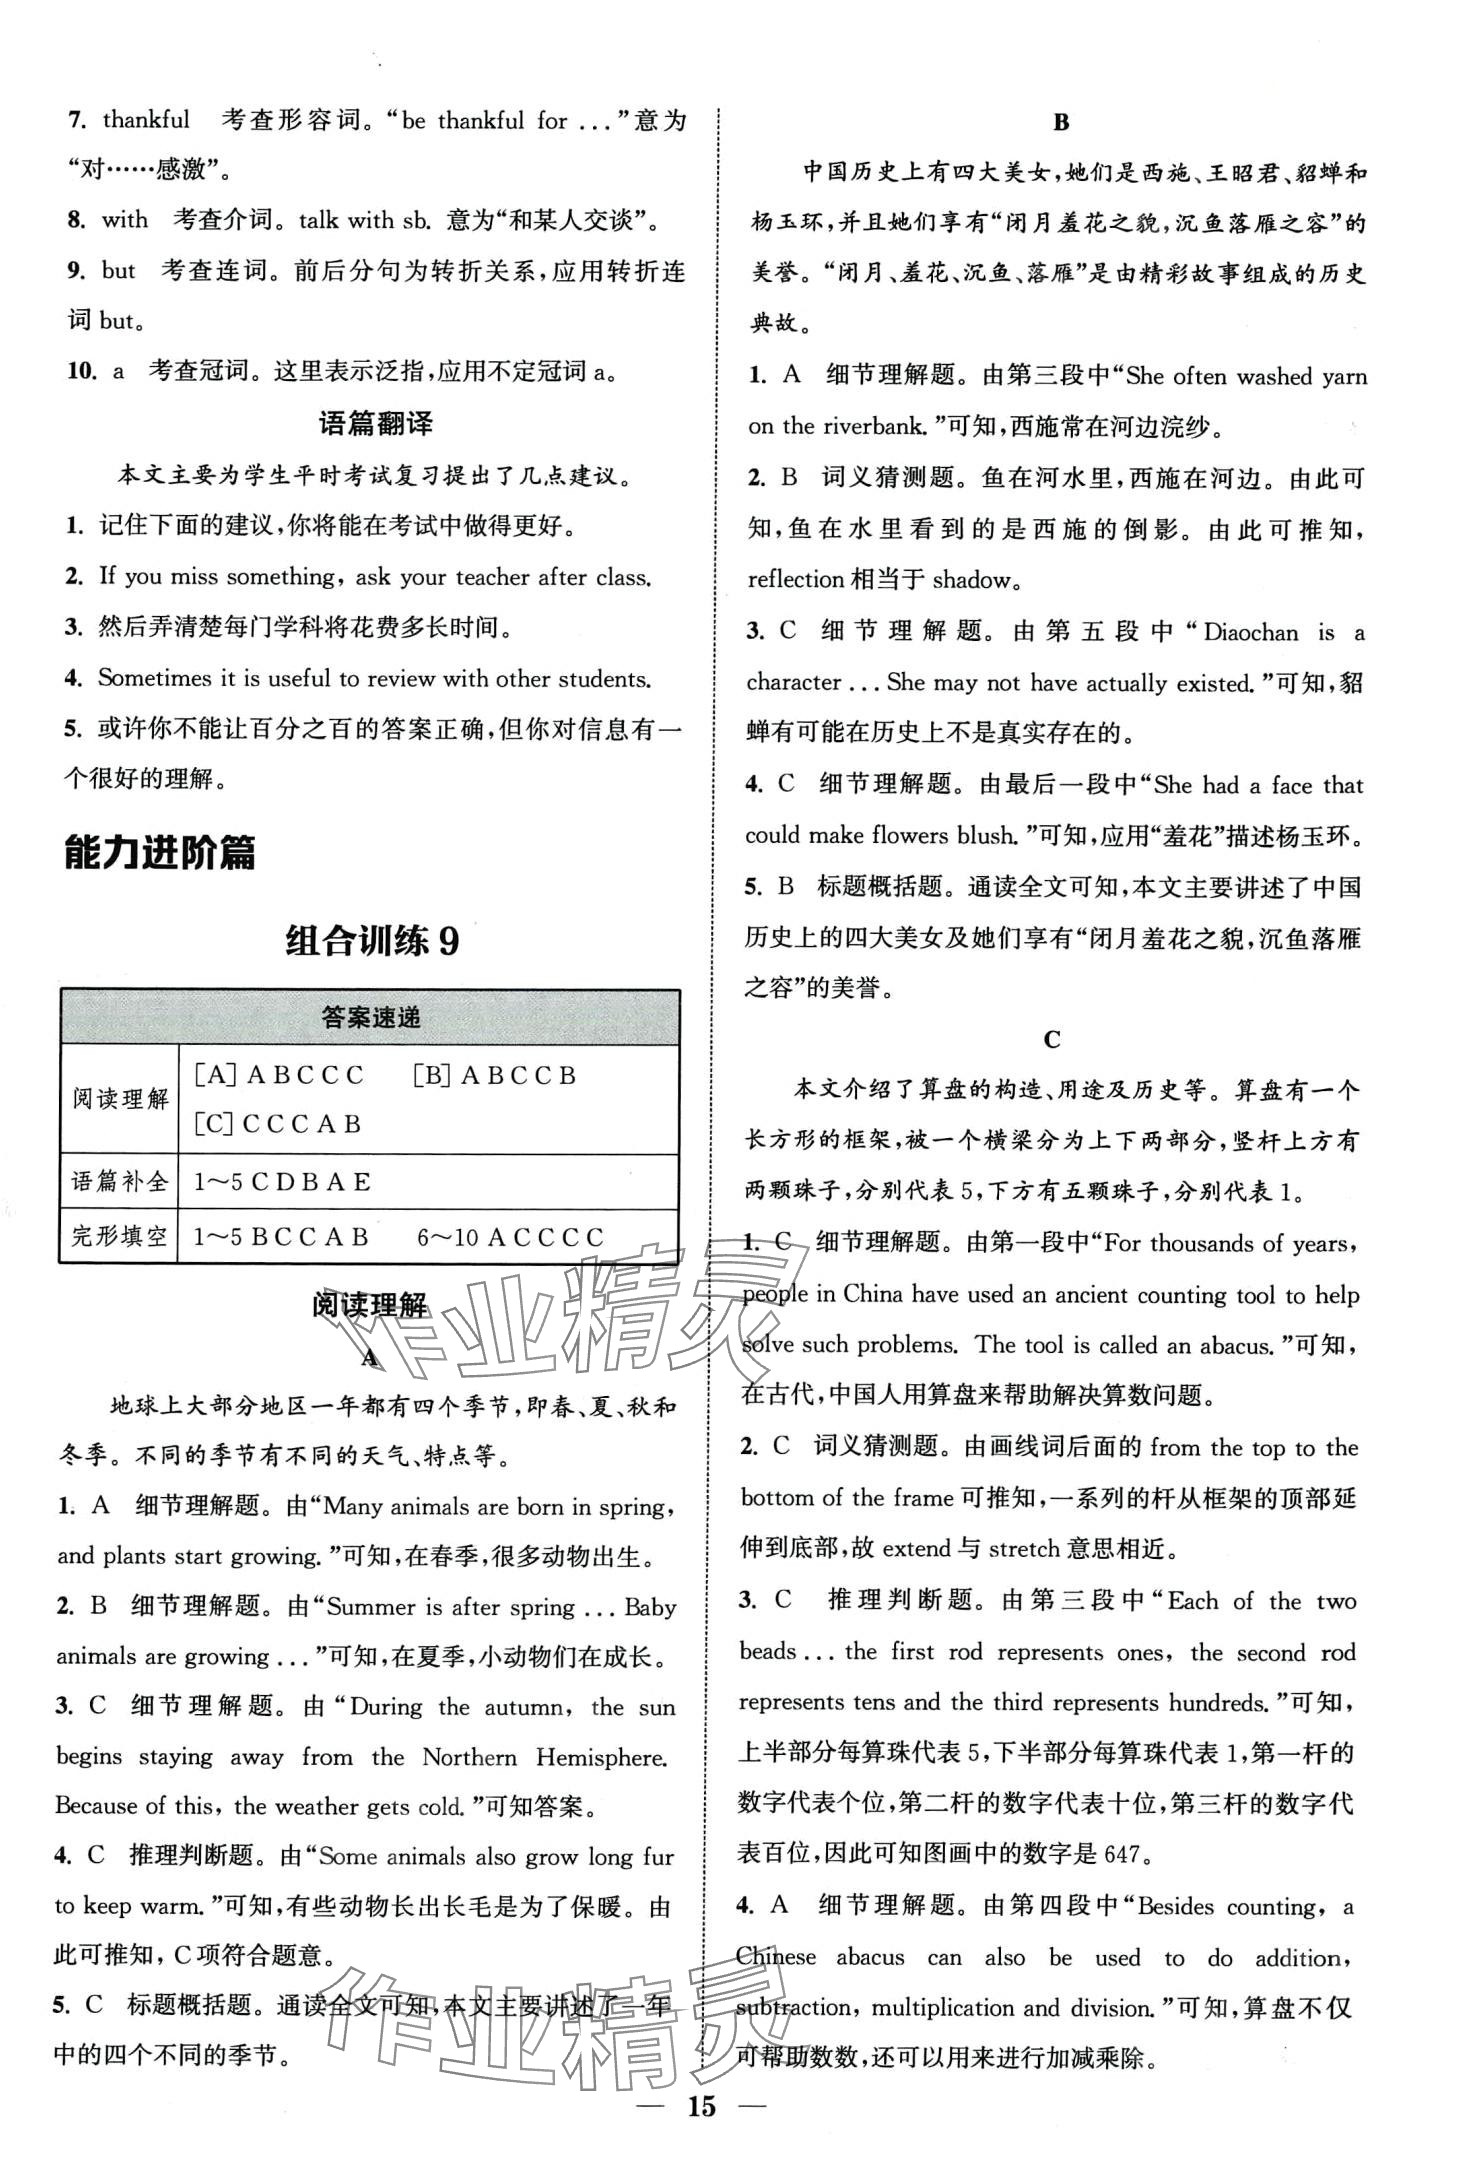 7. thankful 考查形容词。“be thankful for ...”意为
“对……感激”。
8. with 考查介词。talk with sb. 意为“和某人交谈”。
9. but 考查连词。前后分句为转折关系,应用转折连
词 but。
10. a 考查冠词。这里表示泛指,应用不定冠词 a。
语篇翻译
本文主要为学生平时考试复习提出了几点建议。
1. 记住下面的建议,你将能在考试中做得更好。
2. If you miss something, ask your teacher after class.
3. 然后弄清楚每门学科将花费多长时间。
4. Sometimes it is useful to review with other students.
5. 或许你不能让百分之百的答案正确,但你对信息有一
个很好的理解。
能力进阶篇
组合训练 9
答案速递
阅读理解 [A] A B C C C [B] A B C C B
[C] C C C A B
语篇补全 1～5 C D B A E
完形填空 1～5 B C C A B 6～10 A C C C C
阅读理解
A
地球上大部分地区一年都有四个季节,即春、夏、秋和
冬季。不同的季节有不同的天气、特点等。
1. A 细节理解题。由“Many animals are born in spring,
and plants start growing. ”可知,在春季,很多动物出生。
2. B 细节理解题。由“Summer is after spring ... Baby
animals are growing ... ”可知,在夏季,小动物们在成长。
3. C 细节理解题。由“During the autumn, the sun
begins staying away from the Northern Hemisphere.
Because of this, the weather gets cold. ”可知答案。
4. C 推理判断题。由“Some animals also grow long fur
to keep warm. ”可知,有些动物长出长毛是为了保暖。由
此可推知, C 项符合题意。
5. C 标题概括题。通读全文可知,本文主要讲述了一年
中的四个不同的季节。
B
中国历史上有四大美女,她们是西施、王昭君、貂蝉和
杨玉环,并且她们享有“闭月羞花之貌,沉鱼落雁之容”的
美誉。“闭月、羞花、沉鱼、落雁”是由精彩故事组成的历史
典故。
1. A 细节理解题。由第三段中“She often washed yarn
on the riverbank. ”可知,西施常在河边浣纱。
2. B 词义猜测题。鱼在河水里,西施在河边。由此可
知,鱼在水里看到的是西施的倒影。由此可推知,
reflection 相当于 shadow。
3. C 细节理解题。由第五段中“Diaochan is a
character ... She may not have actually existed. ”可知,貂
蝉有可能在历史上不是真实存在的。
4. C 细节理解题。由最后一段中“She had a face that
could make flowers blush. ”可知,应用“羞花”描述杨玉环。
5. B 标题概括题。通读全文可知,本文主要讲述了中国
历史上的四大美女及她们享有“闭月羞花之貌,沉鱼落雁
之容”的美誉。
C
本文介绍了算盘的构造、用途及历史等。算盘有一个
长方形的框架,被一个横梁分为上下两部分,竖杆上方有
两颗珠子,分别代表 5,下方有五颗珠子,分别代表 1。
1. C 细节理解题。由第一段中“For thousands of years,
people in China have used an ancient counting tool to help
solve such problems. The tool is called an abacus. ”可知,
在古代,中国人用算盘来帮助解决算数问题。
2. C 词义猜测题。由画线词后面的 from the top to the
bottom of the frame 可推知,一系列的杆从框架的顶部延
伸到底部,故 extend 与 stretch 意思相近。
3. C 推理判断题。由第三段中“Each of the two
beads... the first rod represents ones, the second rod
represents tens and the third represents hundreds. ”可知,
上半部分每算珠代表 5,下半部分每算珠代表 1,第一杆的
数字代表个位,第二杆的数字代表十位,第三杆的数字代
表百位,因此可知图画中的数字是 647。
4. A 细节理解题。由第四段中“Besides counting, a
Chinese abacus can also be used to do addition,
subtraction, multiplication and division. ”可知,算盘不仅
可帮助数数,还可以用来进行加减乘除。
— 15 —
作业精灵
作业精灵